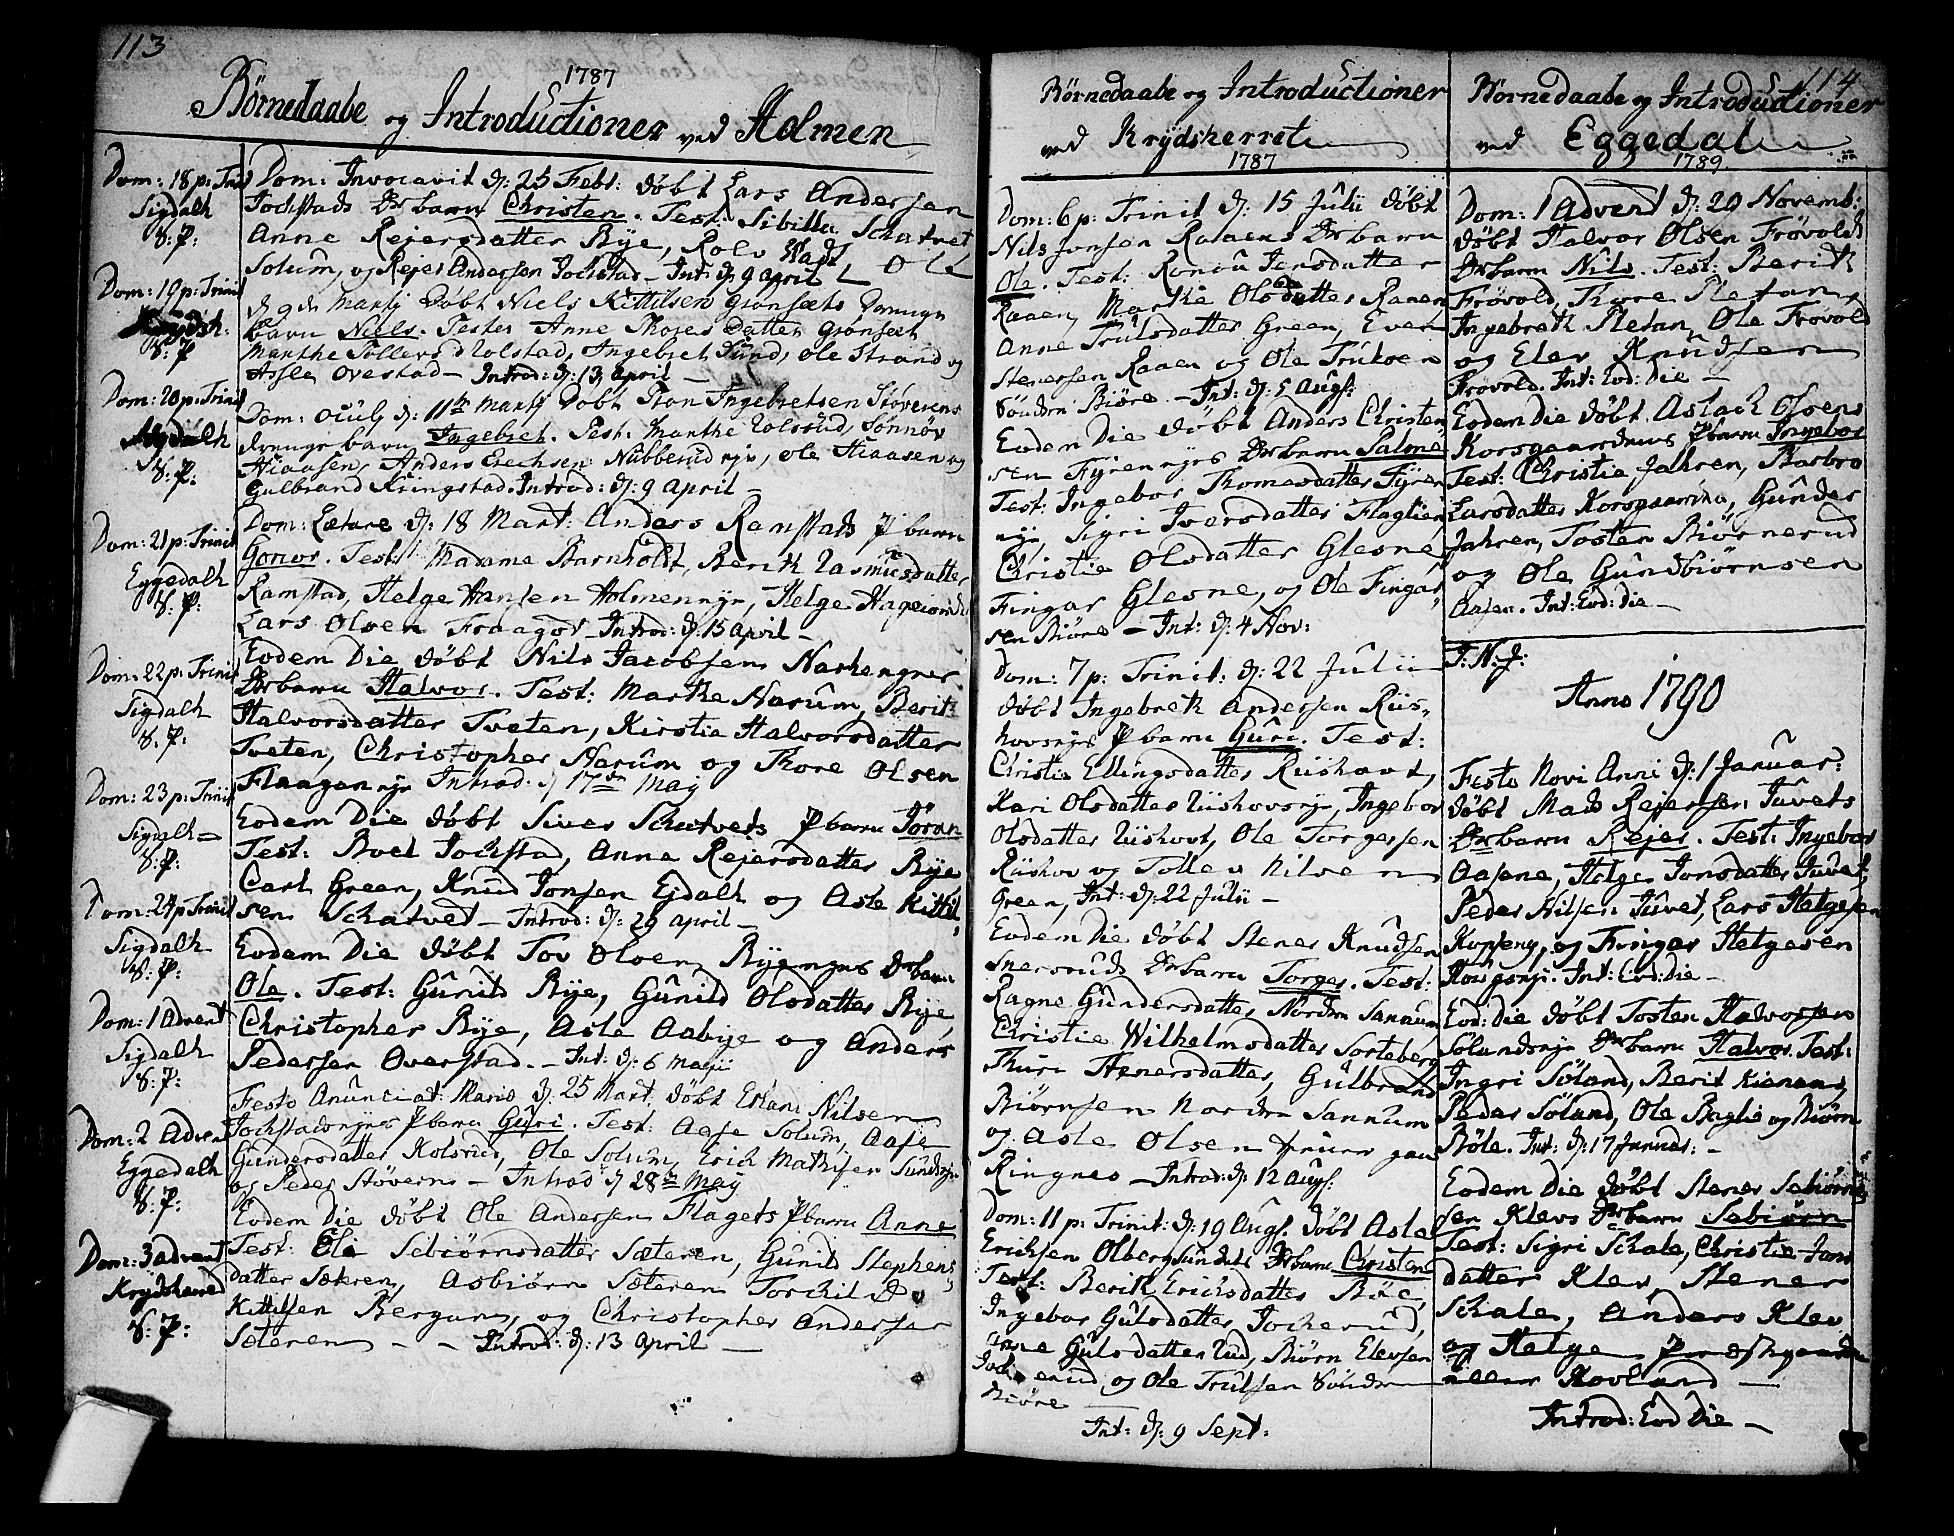 113
1787
Børnedaabe og Introductioner ved Holmen
Dom: 18 p: Trinit
Sigdalh
S: P:
Dom: 19 p: Trinit
Krydsh:
S: P
Dom: 20 p: Trinit
Sigdalh
S: P:
Dom: 21 p: Trinit
Eggedalh
S: P:
Dom: 22 p: Trinit
Sigdalh
S: P:
Dom: 23 p: Trinit
Sigdalh
S: P:
Dom: 24 p Trinit
Sigdalh
S: P:
Dom: 1 Advent
Sigdalh
S: P:
Dom: 2 Advent
Eggedalh
S: P:
Dom: 3 advent
Krydsherred
S: P:
Dom: Invocavit d: 25 Febr: døbt Lars Andersen
Jochstads barn Christen. Test: Sibilla Schatvet
Anne Rejersdatter Rye, Rolv Wad
Solum, og Rejer Andersen Jochstad – Int: d: 9 april
d 9 Martij Døbt Niels Kittilsens Grønsæts
barn Niels. Testes Anne Thoresdatter Grønsæt
Marthe Tollers Rolstad, Ingebret Sund, Ole Strand og
Asle Ovestad – Introd: d: 13 april –
Dom: Oculi d: 11 Martij Døbt Tron Ingebretsen Støverens
barn Ingebret. Test: Marthe Rolsrud, Sønnøv
Hiaasen, Anders Erichsen Nubberud, Ole Hiaasen og
Gulbrand Kringstad. Introd: d: 9 April –
Dom: Lætare d: 18 Mart: Anders Ramstads P barn
Gonor. Test: Madame Barnholdt, Berit Rasmusdatter
Ramstad, Helge Hansen Holmennye, Helge
Lars Olsen Fraagot – Introd: d: 15 april –
Eodem Die døbt Nils Jacobsen
barn Halvor. Test: Marthe Narum, Berit
Halvorsdatter Tveten, Kirstie Halvorsdatter
Tveten, Christopher Narum og Thore Olsen
Flaagan Introd: d 17 May
Eodem Die døbt Siver Schatvets P barn Jøran
Test: Boel Jochstad, Anne Rejersdatter Rye
Carl Green, Knud Jonsen Ejdalh og Asle Kittil
sen Schatvet – Introd: d: 29 april –
Eodem Die døbt Tov Olsen barn
Ole. Test: Gunild Rye, Gunild Olsdatter Rye,
Christopher Rye, Asle Aabye og Anders
Pedersen Overstad. – Int: d: 6 Maji
Festo Anunciat: Mariæ d: 25 Mart. døbt Erland Nilsen
P barn Guri. Test: Aase Solum, Aase
Gundersdatter Kolsrud, Ole Solum, Erich Mathisen
og Peder Støveren – Introd d 28 May
Eodem Die døbt Ole Andersen Flagets P barn Anne
Test: Ole Sebiørnsdatter Sæteren, Gunild Stephens
datter Sæteren, Asbiørn Sæteren Torchild
Kittilsen Bergan, og Christopher Andersen
Sæteren – – Introd: d: 13 April –
Børnedaabe og Introductioner
ved Krydsherret
1787
Dom: 6 p: Trinit d: 15 Julii døbt
Nils Jonsen Raaens barn
Ole. Test: Ronou Jensdatter
Raaen, Marthe Olsdatter Raaen
Anne Trulsdatter Green, Even
Stenersen Raaen og Ole Trulsen
Søndre Biøre. – Int: d: 5 Augs:
Eodem Die døbt Anders Christen
sen barn Salme
Test: Ingebor Thomesdatter Fyren
nye, Sigri Iversdatter
Christie Olsdatter Glesne,
Fingar Glesne, og Ole Fingar
sen Biøre – Int: d: 4 Nov:
Dom: 7 p: Trinit: d: 22 Julii
døbt Ingebreth Andersen Riis
P barn Guri. Test:
Christie Ellingsdatter Riishovt,
Kari Olsdatter, Ingebor
Olsdatter Riishovt, Ole Torgersen
Riishov og Tollev Nilsen
Green, Int: d: 22 Julii –
Eodem Die døbt Stener Knudsen
Snersruds barn Torger. Test:
Ragne Gundersdatter Nordre Sanum
Christie Wilhelmsdatter Sorteberg
Thuri Stenersdatter, Gulbrand
Biørnsen Nordre Sannum
og Asle Olsen
Ringnes – Introd: d: 12 Augs:
Dom: 11 p: Trinit: d: 19 Augs. døbt Asle
Erichsen Olberg barn Christen
Test: Berit Erichsdatter Bøe,
Ingebor Gulsdatter Jocherud,
Anne Gulsdatter Rud, Biørn Elevsen
Jocherud og Ole Trulsen Søndre
Biøre
Int: d: 9 Sept:
114
Børnedaabe og Introductioner
ved Eggedal
1789
Dom: 1 Advent d: 29 Novemb:
døbt Halvor Olsen Frøvolds
barn Nils. Test: Berith
Frøvold, Thore Pletan,
Ingebreth Pletan, Ole Frøvold
og Elev Knudsen
Frøvold. Int: Eod: Die –
Eodem Die døbt Aslach Olsens
P barn Ingebor
Test: Christie Jahren, Barbro
Larsdatter, Gunder
Jahren, Tosten Biørnerud
og Ole Gundbiørnsen
Aasen. Int: Eod: Die –
I: N: J:
Anno 1790
Festo Novi Anni d: 1 Januar:
døbt Mads Rejersen Juvets
barn Rejer. Test: Ingebor
Aasene, Helge Jonsdatter Juvet,
Peder Nilsen Juvet, Lars Helgesen
Kopseng, og Fingar Helgesen
Int: Eod: Die –
Eod: Die døbt Tosten Halvorsen
barn Halvor. Test:
Ingri Søland, Berit
Peder Søland, Ole Baglie og Biørn
Bøle. Int: d: 17 Januar: –
Eodem Die døbt Stener Sebiørn
sen Klevs barn Sebiørn
Test: Sigri Schale, Christie Jons
datter Klev, Stener
Schale, Anders Klev
og Helge Præstegaarden
eller Hovland –
Introd: Eod Die –